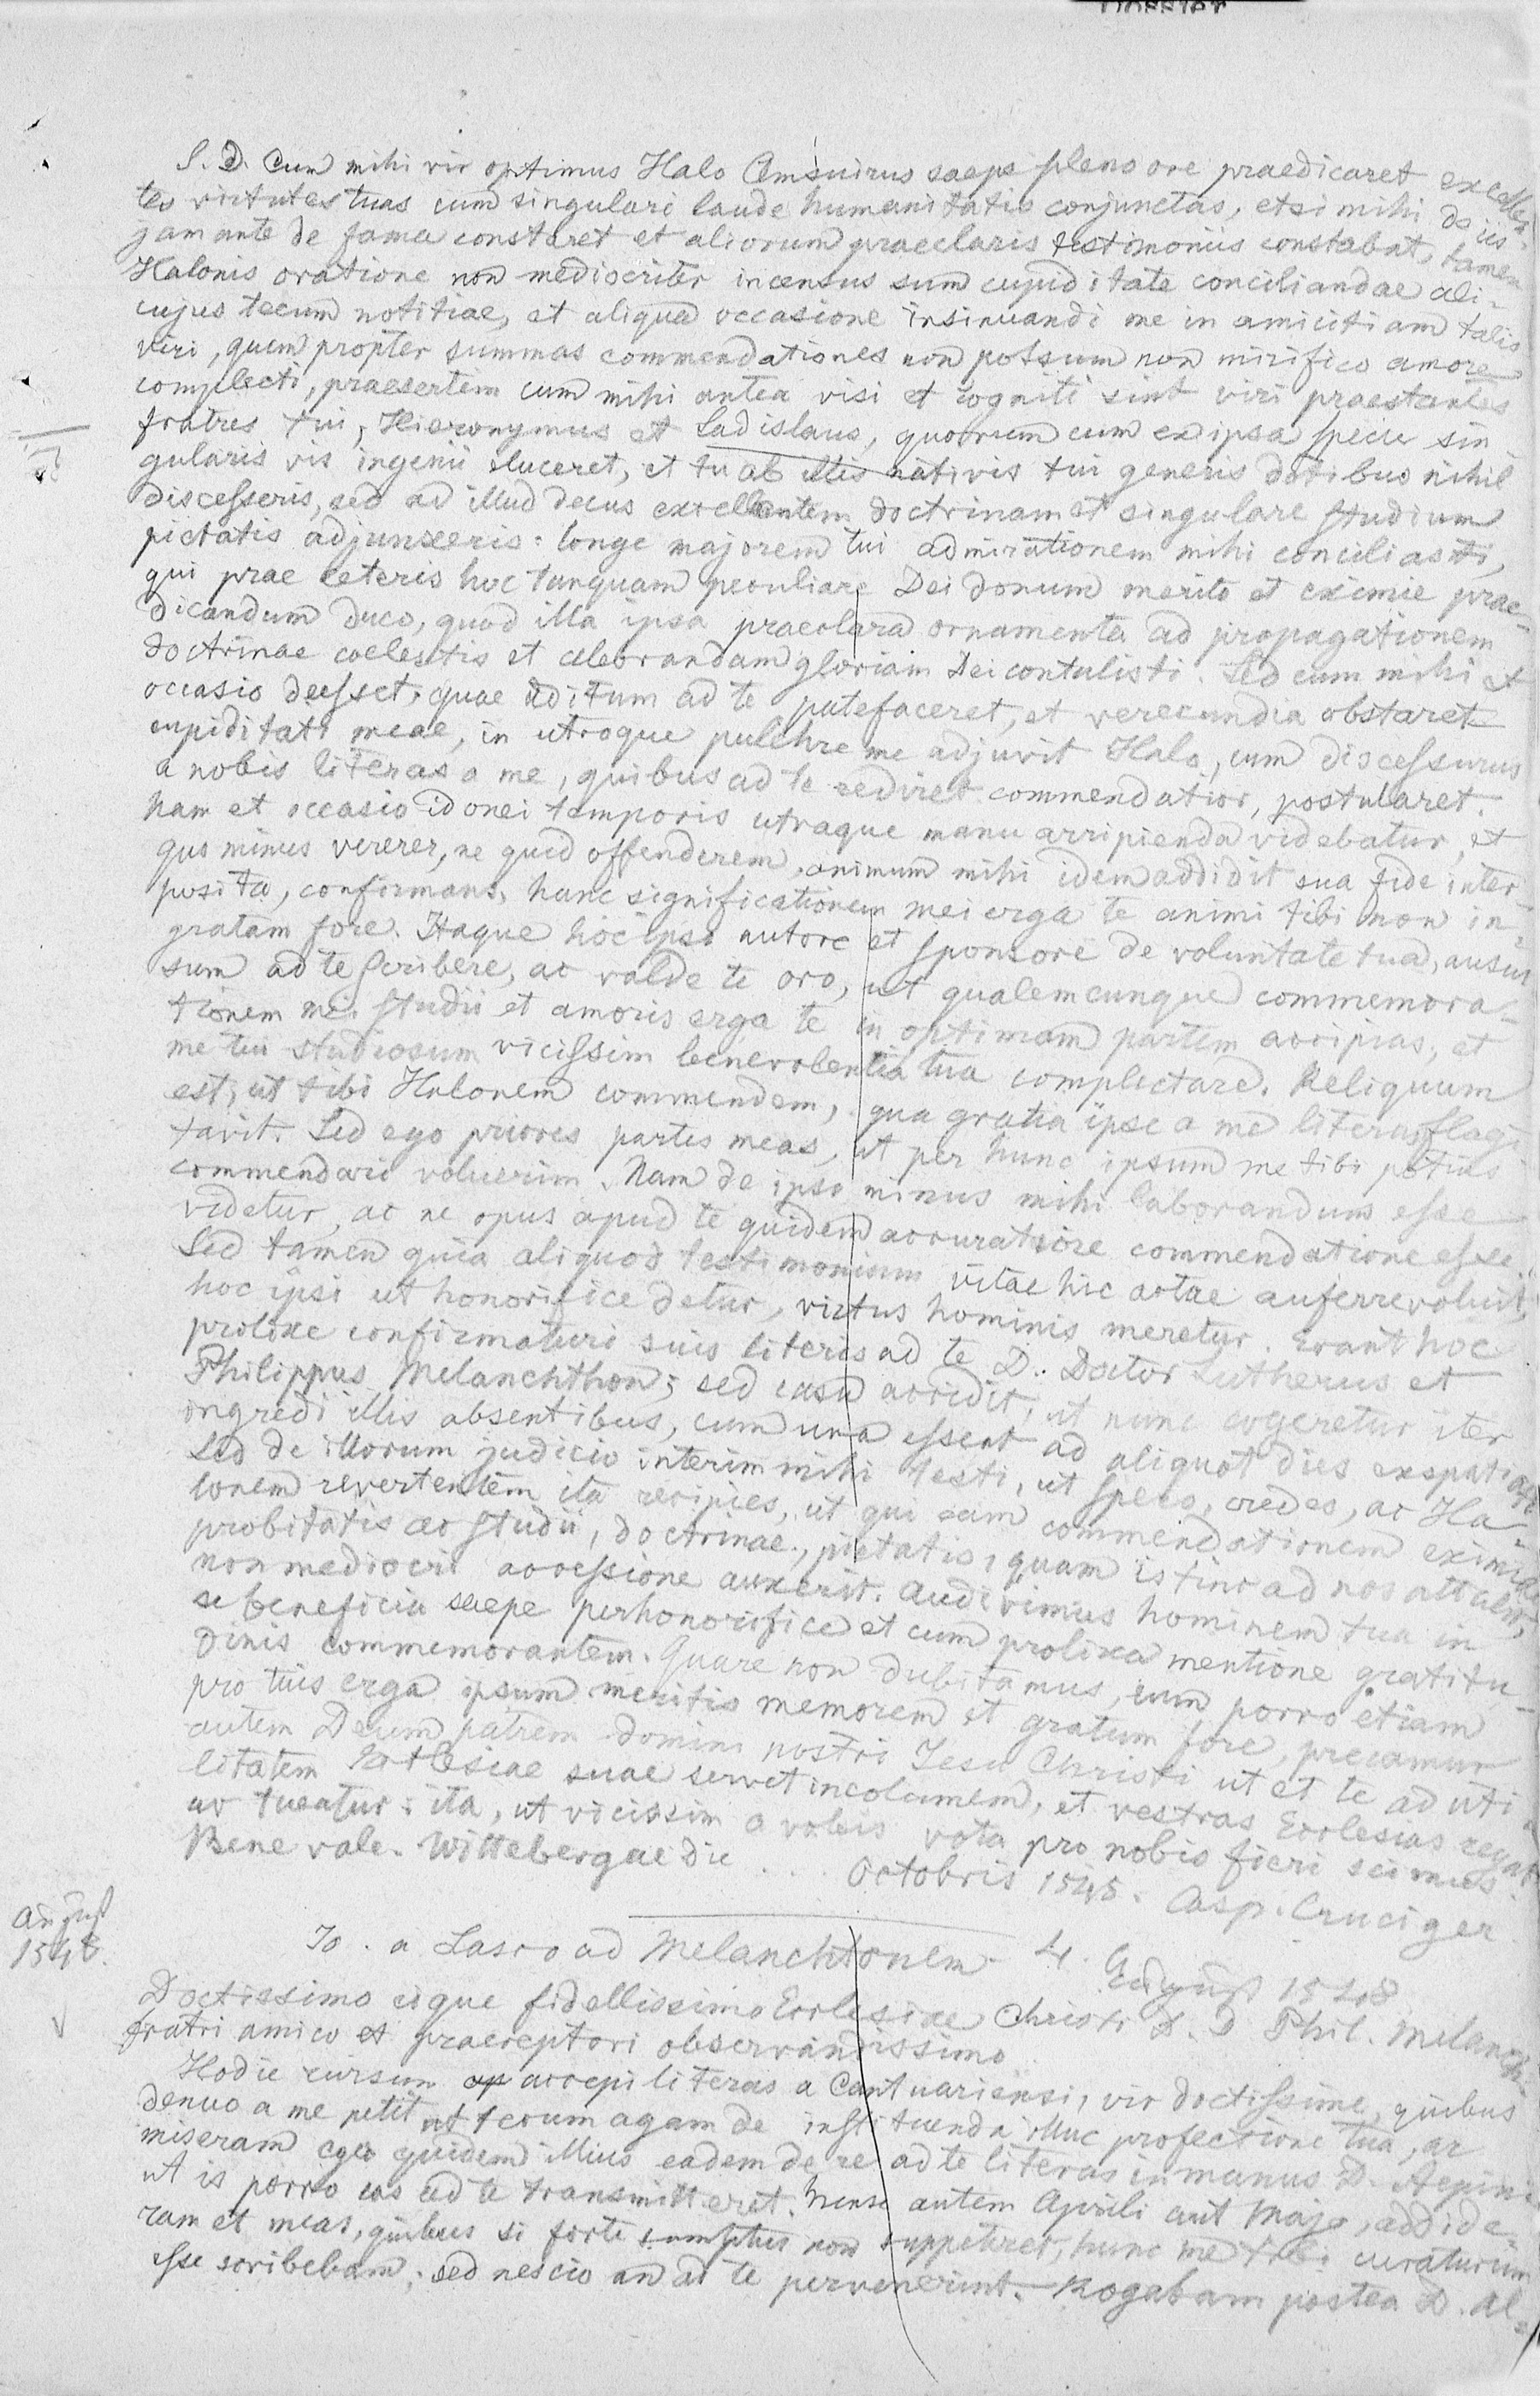 S. D. Cum mihi vir optimus Halo Amsuirus saepe pleno ore praedicaret excellen-
tes virtutes tuas cum singulari laude humanitatis conjunctas, etsi mihi de iis
jam ante de fama constaret et aliorum praeclaris testimoniis constabat, tamen
Halonis oratione non mediocriter incensus sum cupiditate conciliandae ali-
cujus tecum notitiae, et aliqua occasione insinuandi me in amicitiam talis
viri, quem propter summas commendationes non possum non mirifico amore
complecti, praesertim cum mihi antea visi et cogniti sint viri praestantes
fratres tui, Hieronymus et Ladislaus, quorum cum ex ipsa specie sin
gularis vis ingenii eluceret, et tu ab illis nativis tui generis dotibus nihil
discesseris, sed ad illud decus excellentem doctrinam et singulare studium
pietatis adjunxeris: longe majorem tui admirationem mihi conciliasti,
qui prae ceteris hoc tanquam peculiare Dei donum merito et eximie prae-
dicandum duco, quod illa ipsa praeclara ornamenta ad propagationem
doctrinae coelestis et celebrandam gloriam Dei contulisti. Sed cum mihi et
occasio deesset, quae aditum ad te patefaceret, et verecundia obstaret
cupiditati meae, in utroque pulchre me adjuvit Halo, cum discessurus
a nobis literas a me, quibus ad te rediret commendatior, postularet.
Nam et occasio idonei temporis utraque manu arripienda videbatur, et
quo minus vererer, ne quid offenderem, animum mihi idem addidit sua fide inter-
posita, confirmans, hanc significationem mei erga te animi tibi non in-
gratam fore. Itaque hoc ipso autore et sponsore de voluntate tua, ausus
sum ad te scribere, ac valde te oro, ut qualemcunque commemora-
tionem mei studii et amoris erga te in optimam partem accipias, et
me tui studiosum vicissim benevolentia tua complectare. Reliquum
est, ut tibi Halonem commendem, qua gratia ipse a me literas flagi
tavit. Sed ego priores partes meas, ut per hunc ipsum me tibi potius
commendari voluerim. Nam de ipso minus mihi laborandum esse
videtur, ac ne opus apud te quidem accuratiore commendatione esse.
Sed tamen quia aliquod testimonium vitae hic actae auferre voluit,
hoc ipsi ut honorifice detur, virtus hominis meretur. Erant hoc
prolixe confirmaturi suis literis ad te D. Doctor Lutherus et
Philippus Melanchthon; sed casu accidit, ut nunc cogeretur iter
ingredi illis absentibus, cum una essent ad aliquot dies exspatiati
Sed de illorum judicio interim mihi testi, ut spero, credes, ac Ha
lonem revertentem ita recipies, ut qui eam commendationem eximiae
probitatis ac studii, doctrinae, pietatis, quam istinc ad nos attulit,
non mediocri accessione auxerit. Audivimus hominem tua in
se beneficia saepe perhonorifice et cum prolixa mentione gratitu-
dinis commemorantem. Quare non dubitamus, eum porro etiam
pro tuis erga ipsum meritis memorem et gratum fore, precamur
autem Deum patrem domini nostri Jesu Christi ut et te ad uti
litatem Ecclesiae suae servet incolumem, et vestras Ecclesias regat
ac tueatur: ita, ut vicissim a vobis vota pro nobis fieri scimus.
Bene vale. Wittebergae die . . . Octobris 1545. Casp. Cruciger
August
1548.
Jo. a Lasco ad Melanchtonem 4. August 1548
Doctissimo eique fidellissimo Ecclesiae Christi D. D Phil. Melanch.
fratri amico et praeceptori observandissimo
Hodie rursum accepi literas a Cantuariensi, vir doctissime, quibus
denuo a me petit ut tecum agam de instituenda illuc profectione tua, ac
miseram ego quidem illius eadem de re ad te literas in manus D. Aepini
ut is porro eas ad te transmitteret. Mense autem Aprili aut Majo, addide
ram et meas, quibus si forte sumptus non suppeteret, hunc me tibi curaturum
esse scribebam; sed nescio an ad te pervenerint. Rogabam postea D. Al-